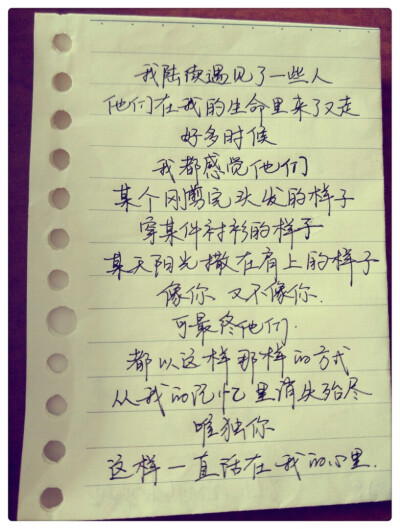 我陆续遇见了一些人
他们在我的生命里来了又走
好多时候
我都感觉他们
某个刚剪完头发的样子
穿某件衬衫的样子
某天阳光撒在肩上的样子
像你 又不像你.
可最终他们.
都以这样那样的方式
从我的记忆里消失殆尽
唯独你
这样一直活在我的心里.